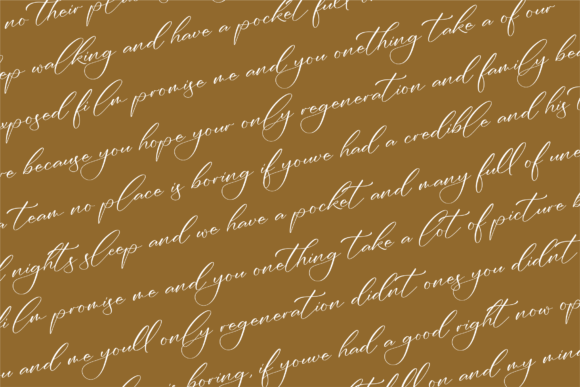 no their pla
ep walking and have a pocket full o
xposed film promise me and you onething take a of our
re because you hope your only regeneration and family bec
a team no place is boring if youve had a credible and his
l nights sleep and we have a pocket and many full of une
film promise me and you onething take a lot of picture b
ou and me youll only regeneration didnt ones you didnt
is boring, if youve had a good right now op
full on and my mind